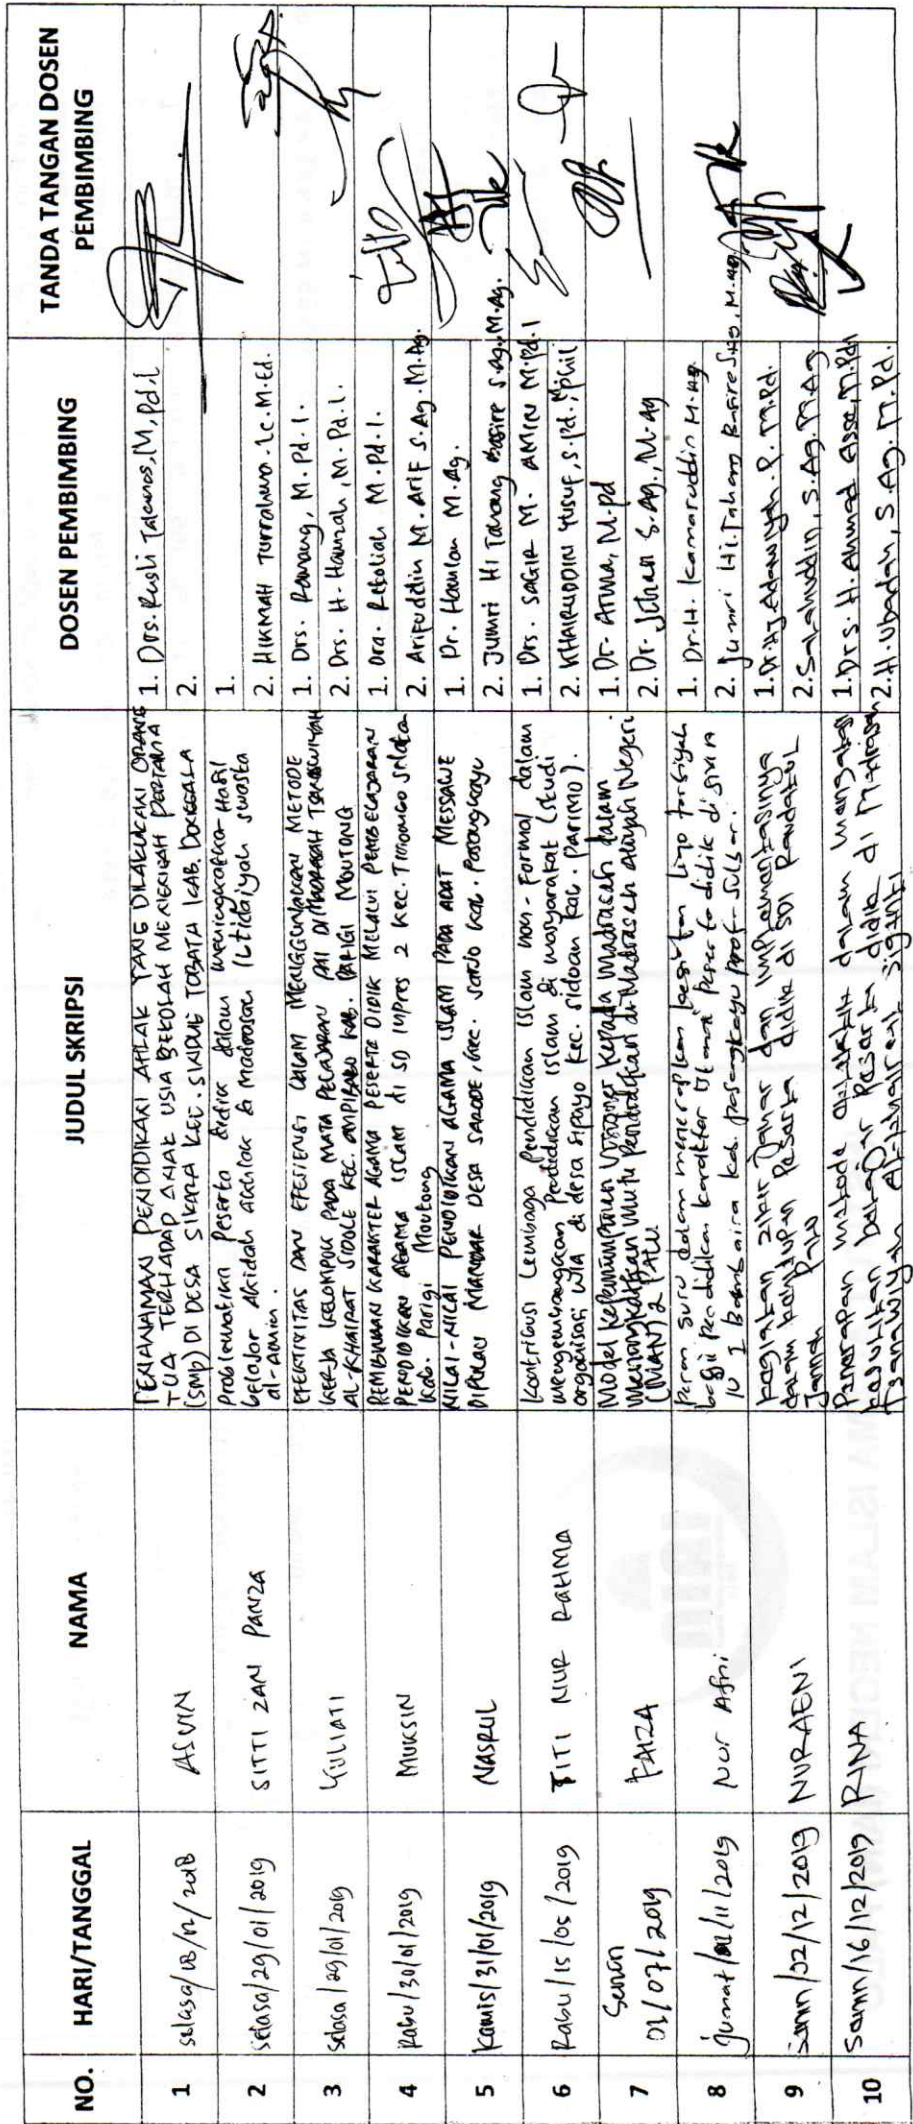 NO. HARI/TANGGAL NAMA JUDUL SKRIPSI DOSEN PEMBIMBING TANDA TANGAN DOSEN
PEMBIMBING
1 selasa/18/12/2018 ASVIN PENANAMAN PENDIDIKAN AHLAK YANG DILAKUKAN ORANG
TUA TERHADAP ANAK USIA SEKOLAH MENENGAH PERTAMA
(SMP) DI DESA SIKARA KEC. SINDUE TOBATA KAB. DONGGALA
1. Drs. Rusli Takunas, M.Pd.I
2.
2 selasa/29/01/2019 SITTI ZAN PANZA Problematika Peserta didik dalam meningkatkan Hasil
belajar Akidah acchlak di Madrasah Ibtidaiyah swasta
al-amin.
1.
2. HIKMAH Turrahma. Lc. M.Ed.
3 selasa/29/01/2019 YULIATI EFEKTIVITAS DAN EFESIENSI DALAM MENGGUNAKAN METODE
KERJA KELOMPOK PADA MATA PELAJARAN PAI DI MADRASAH TSANAWIYAH
AL-KHAIRAT SIDOLE KEC. AMPIBABO KAB. PARIGI MOUTONG
1. Drs. Ramang, M.Pd.I.
2. Drs. H. Hamzah, M.Pd.I.
4 Rabu/30/01/2019 MUKSIN PEMBINAAN KARAKTER AGAMA PESERTA DIDIK MELALUI PEMBELAJARAN
PENDIDIKAN AGAMA ISLAM di SD INPRES 2 Kec. Tinombo Selatan
Kab. Parigi Moutong
1. Dra. Retoliah M.Pd.I.
2. Arifuddin M. Arif S.Ag. M.Ag.
5 Kamis/31/01/2019 NASRUL NILAI-NILAI PENDIDIKAN AGAMA ISLAM PADA ADAT MESSAWE
DIPULAU MANDAR DESA SARUDE, Kec. Sarjo Kab. Pasangkayu
1. Dr. Hamlan M.Ag.
2. JUMRI HI TAHANG Basire S.Ag. M.Ag.
6 Rabu/15/05/2019 TITI NUR RAHMA Kontribusi Lembaga pendidikan Islam non-Formal dalam
mengembangkan Pendidikan islam di masyarakat (studi
organisasi WIA di desa sipayo kec. sidoan kab. PARIMO).
1. Drs. SAGIR M. AMIN M.Pd.I
2. KHAIRUDDIN YUSUF, S.Pd., M.Phil
7 Senin
01/07/2019 FAIZA Model kepemimpinan Visioner Kepada Madrasah dalam
meningkatkan mutu Pendidikan di Madrasah Aliyah Negeri
(MAN) 2 PALU
1. Dr. Arwa, M.Pd
2. Dr. Jihan S.Ag., M.Ag
8 Jumat/01/11/2019 Nur Afni Peran guru dalam menerapkan kegiatan
bagi Pendidikan karakter utama Peserta didik di
Kab. pasangkayu prof. sulbar.
1. Dr. H. Kamaruddin M.Ag
2. Jumri Hi. Tahang Basire S.Ag, M.Ag
9 Senin/02/12/2019 NURAENI kegiatan zikir Jahar dan implementasinya
dalam kehidupan Peserta didik di SDI Raudatul
Jannah Palu
1. Dr. Hj. Adawiyah. P. M.Pd.
2. Salahuddin, S.Ag. M.Ag
10 Senin/16/12/2019 RINA Penerapan metode didaktik dalam mengatasi
kesulitan belajar Peserta didik di Madrasah
Tsanawiyah Alkhairat
1. Drs. H. Ahmad Asse, M.Pd.I
2. H. Ubadah, S.Ag. M.Pd.